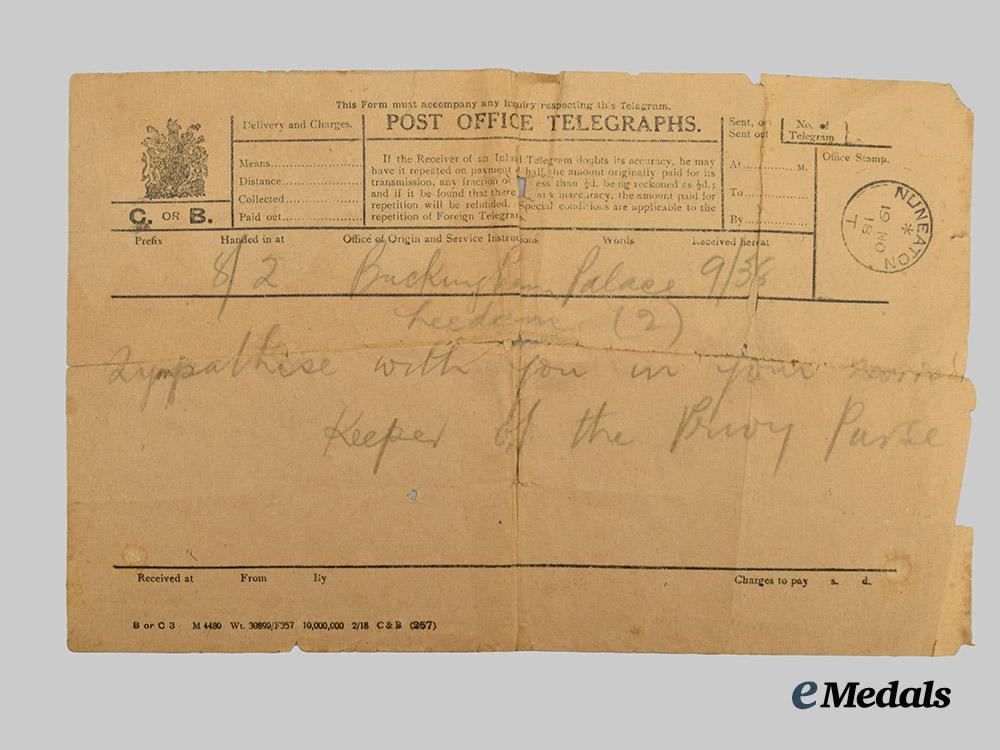 This Form must accompany any Inquiry respecting this Telegram.
POST OFFICE TELEGRAPHS.
Delivery and Charges.
Means
Distance
Collected
Paid out
C. OR B.
If the Receiver of an Inland Telegram doubts its accuracy, he may
have it repeated on payment half the amount originally paid for its
transmission, any fraction of less than ½d. being reckoned as ½d.;
and if it be found that there any inaccuracy, the amount paid for
repetition will be refunded. Special conditions are applicable to the
repetition of Foreign Telegrams.
Sent, or
Sent out
At M.
To
By
No. of
Telegram
Office Stamp.
NUNEATON
19 NO
18
T
Prefix Handed in at Office of Origin and Service Instructions Words Received here at
8/2 Buckingham Palace 9/38
(2)
Sympathise with you in your
Keeper of the Privy Purse
Received at From By Charges to pay s. d.
B or C 3 M 4480 Wt. 30899/F357 10,000,000 2/18 C & B (257)
eMedals